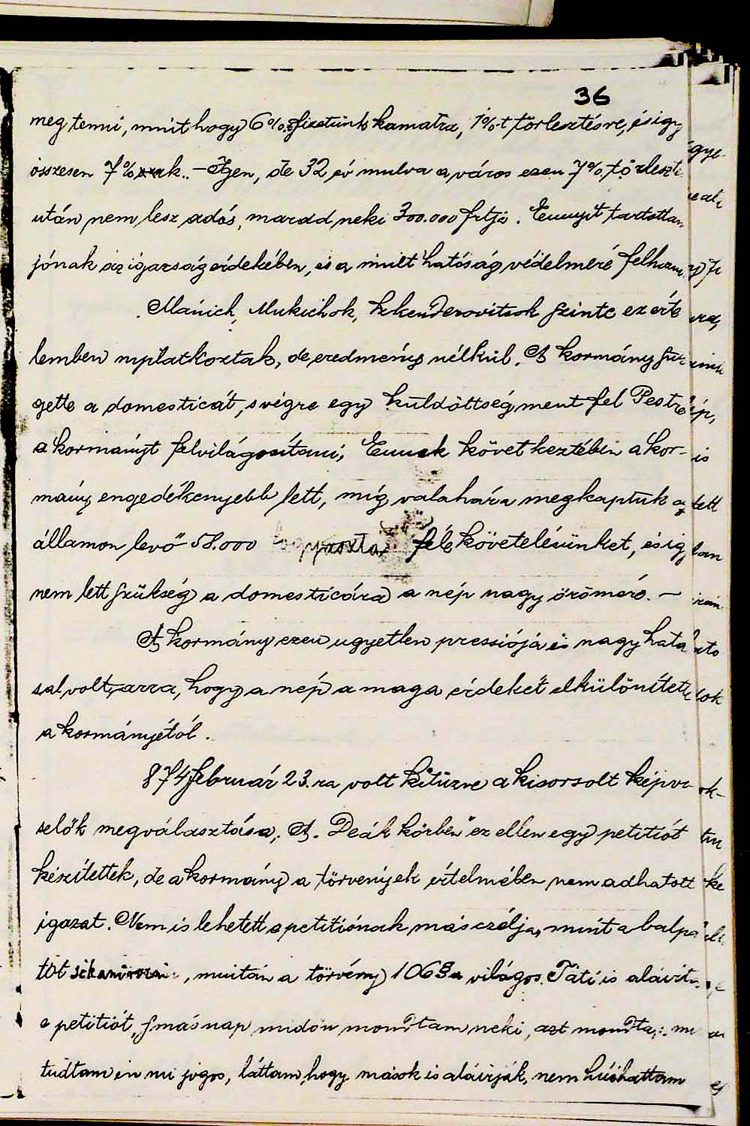 36
megtenni, mint hogy 6% fizetünk kamatra, 1%-t törlesztésre, és így
összesen 7% . – Igen, de 32 év mulva a város ezen 7% törleszt
után nem lesz adós, marad neki 300.000 frtja. Ennyit tartottam
jónak az igazság érdekében, és a mult hatóság védelmére felhozni
Mánich, Mukichok, szintc ez érte
lemben nyilatkoztak, de eredmény nélkül. A kormány sür
gette a domesticát, s végre egy küldöttség ment fel Pestre
a kormányt felvilágosítani, Ennek következtében a kor-
mány engedékenyebb lett, míg valahára megkaptuk az
államon levő 58.000 féle követelésünket, és így
nem lett szükség a domesticára a nép nagy örömére. –
A kormány ezen ugyetlen pressiója is nagy hatá
sal volt arra, hogy a nép a maga érdekét elkülönítette
a kormányétól.
874 február 23.ra volt kitüzve a kisorsolt képvi-
selők megválasztása, A. Deák körben" ez ellen egy petitiót
készítettek, de a kormány a törvények értelmében nem adhatott
igazat. Nem is lehetett a petitiónak más czélja, mint a balpá
tot , miután a törvény 106§a világos. Táti is aláírt
a petitiót, s másnap midőn mondtam neki, azt mondta: mi
tudtam én mi jogos, láttam, hogy mások is aláirják, nem húzhattam